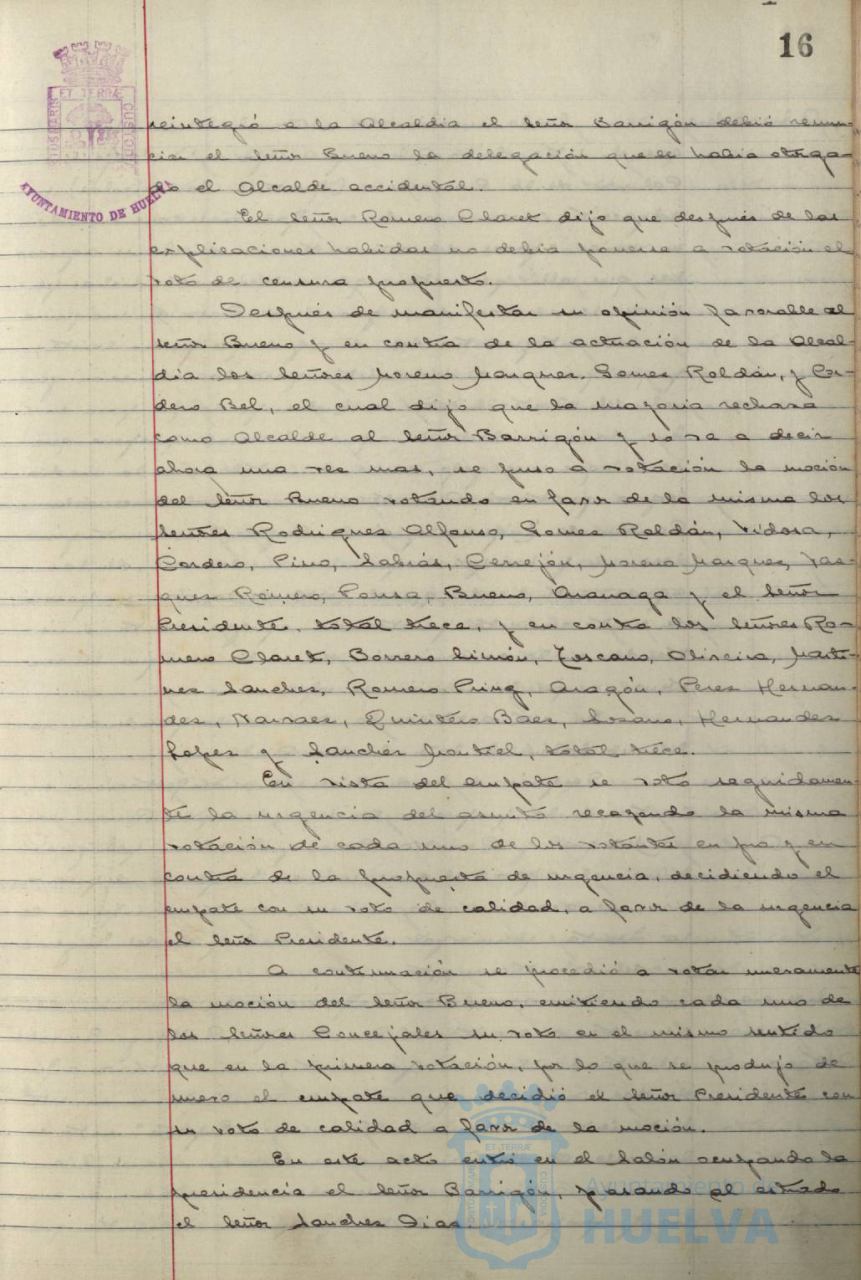 16
ET TERRÆ
CUSTODIA
AYUNTAMIENTO DE HUELVA
reintegró a la Alcaldia el Señor Barrigón debió renun-
ciar el Señor Bueno la delegación que le habia otorga-
do el Alcalde accidental.
El Señor Romero Claret dijo que después de las
explicaciones habidas no debia ponerse a votación el
voto de censura propuesto.
Después de manifestar su opinión favorable al
Señor Bueno y en contra de la actuación de la Alcal-
dia los Señores Moreno Marquez, Gomez Roldán, y Cor-
dero Bel, el cual dijo que la mayoria rechaza
como Alcalde al Señor Barrigón y lo va a decir
ahora una vez mas, se puso a votación la moción
del Señor Bueno votando en favor de la misma los
Señores Rodriguez Alfonso, Gomez Roldán, Vidosa,
Cordero, Pino, Sabrás, Cerrejón, Moreno Marquez, Vaz-
quez Romero, Ponsa, Bueno, Aranaga y el Señor
Presidente, total trece, y en contra los Señores Ro-
mero Claret, Borrero Limón, Toscano, Oliveira, Marti-
nez Sanchez, Romero Aragón, Perez Hernan-
dez, Narvaez, Quintero Baez, Lozano, Hernandez
Lopez y Sanchez Montiel, total trece.
En vista del empate se votó seguidamen-
te la urgencia del asunto recayendo la misma
votación de cada uno de los votantes en pro y en
contra de la propuesta de urgencia, decidiendo el
empate con su voto de calidad, a favor de la urgencia
el Señor Presidente.
A continuación se procedió a votar nuevamente
la moción del Señor Bueno, emitiendo cada uno de
los Señores Concejales su voto en el mismo sentido
que en la primera votación, por lo que se produjo de
nuevo el empate que decidió el Señor Presidente con
su voto de calidad a favor de la moción.
En este acto entró en el Salón ocupando la
presidencia el Señor Barrigón, pasando al estrado
el Señor Sanchez Diaz
ET TERRÆ
Ayuntamiento de
HUELVA